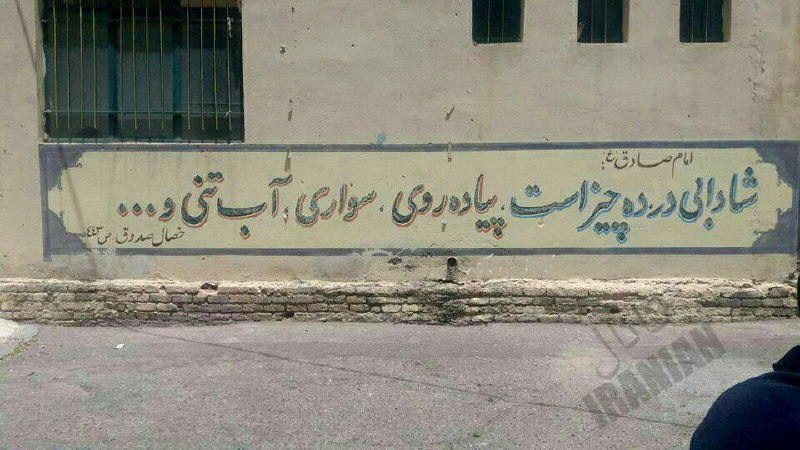 امام صادق ع:
شادابی در ده چیز است، پیاده روی، سواری، آب تنی و...
خصال صدوق ص ۴۴۳
IRANIAN